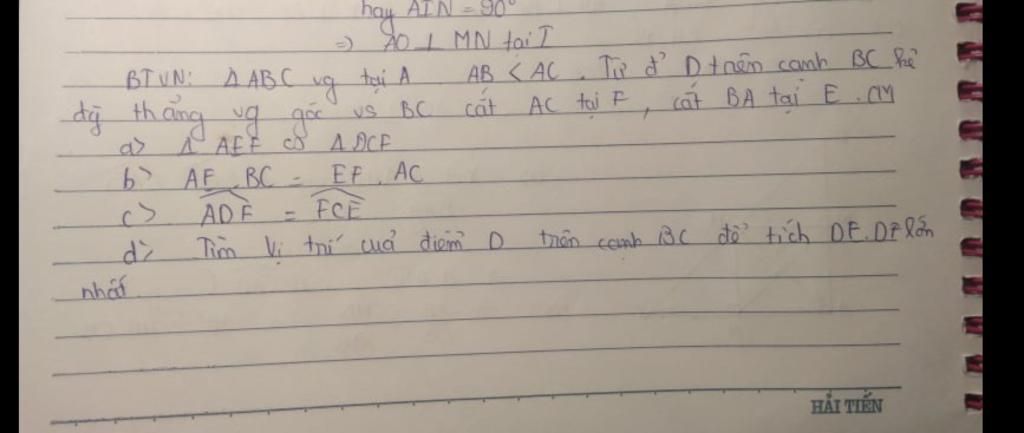 hay AIN = 90°
=> AO ⊥ MN tại I
BTVN: Δ ABC vg tại A AB < AC. Từ đ' D trên cạnh BC kẻ
đg̃ thẳng vg góc vs BC cắt AC tại F, cắt BA tại E. CM
a> Δ AEF ∽ Δ DCF
b> AF. BC = EF. AC
c> ADF = FCE
d> Tìm vị trí của điểm D trên cạnh BC để tích DE.DF lớn
nhất.
HẢI TIẾN